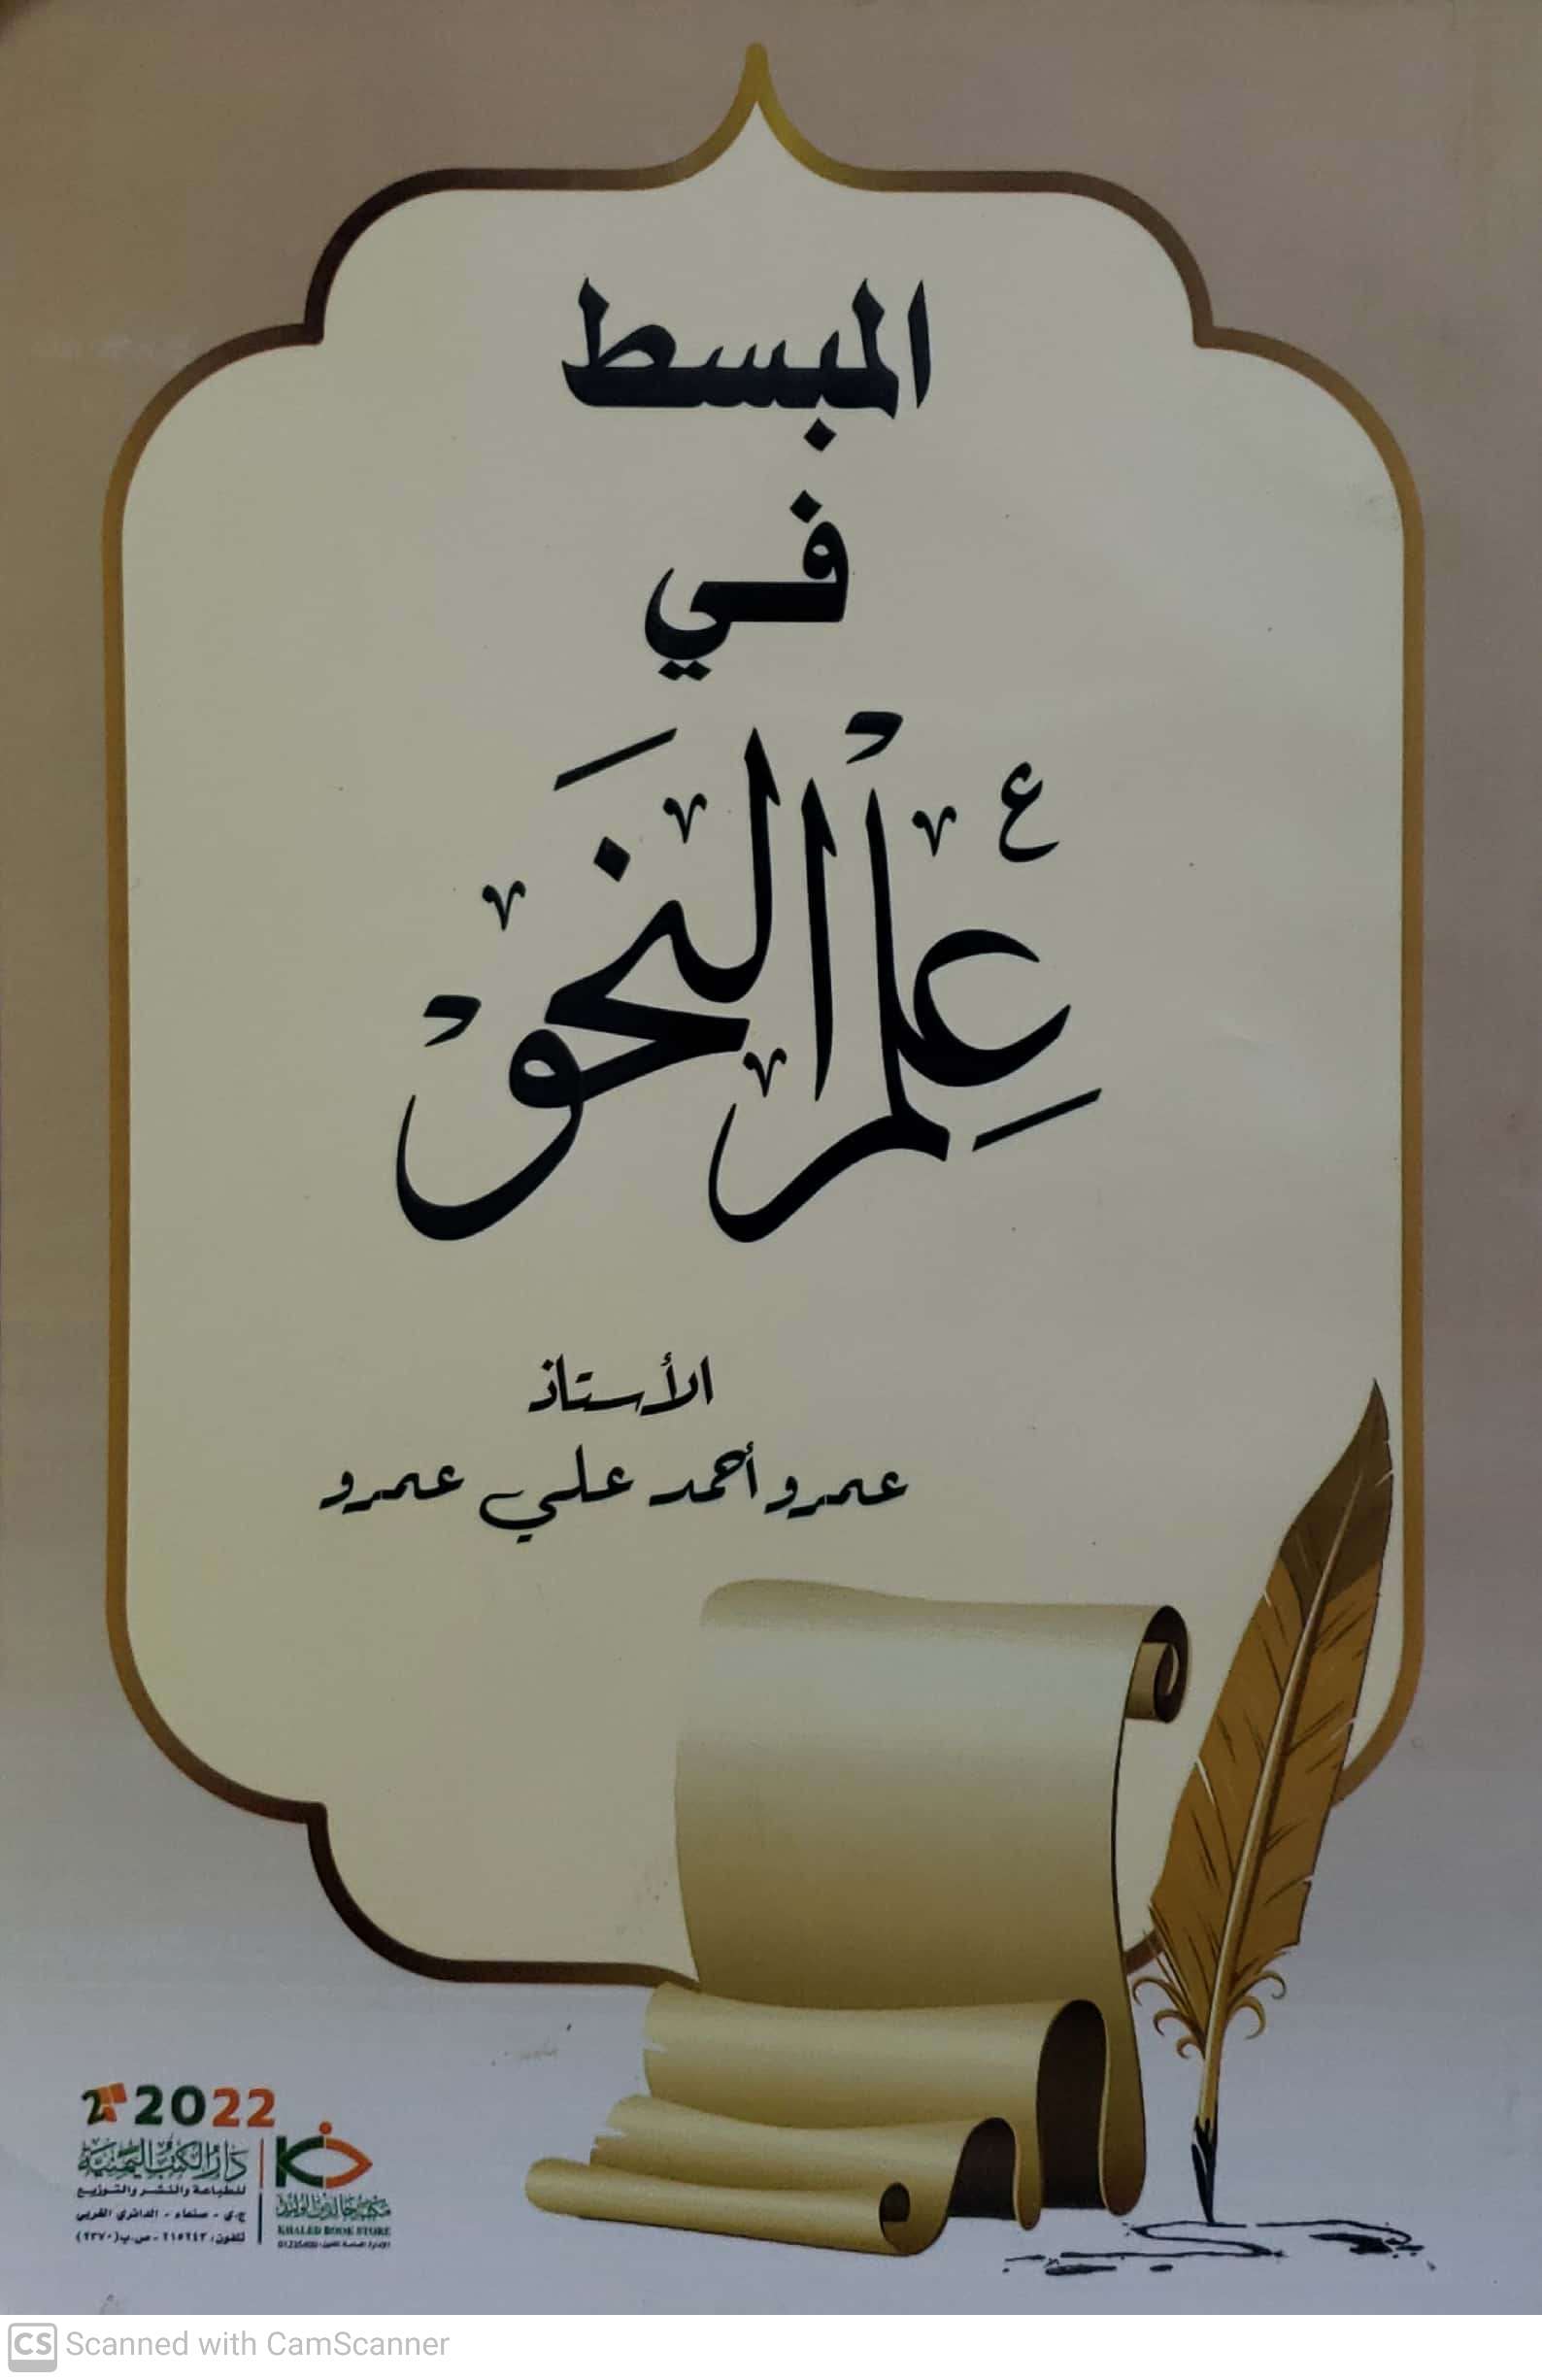 المبسط
في
علم النحو
الأستاذ
عمرو أحمد علي عمرو
2022
دار الكتب اليمنية
للطباعة والنشر والتوزيع
ج.ي - صنعاء - الدائري الغربي
مكتبة خالد بن الوليد
KHALED BOOK STORE
CS Scanned with CamScanner